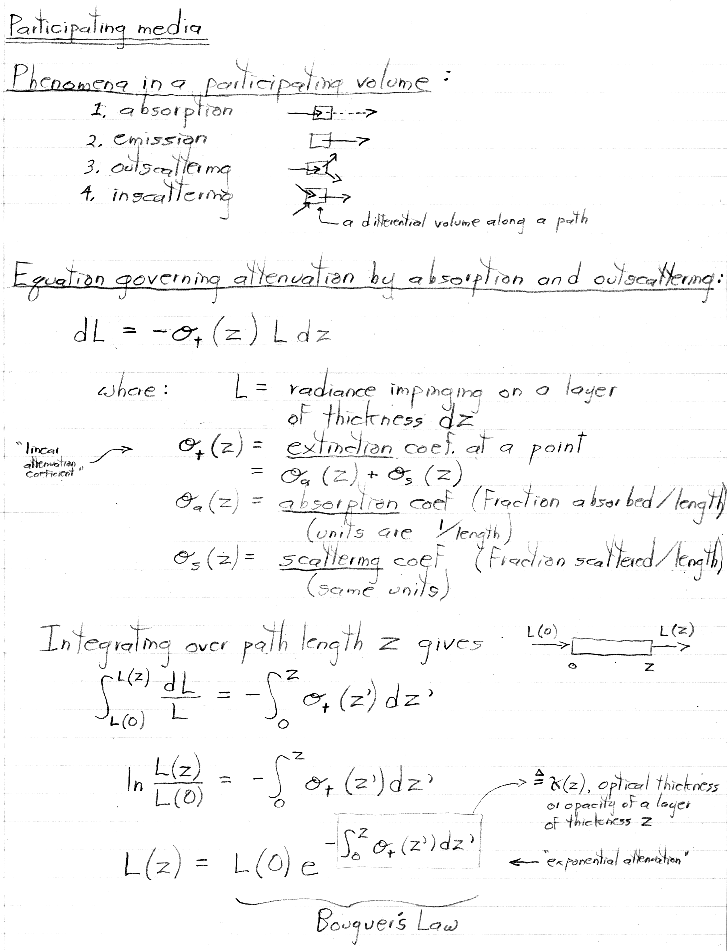 Participating media
Phenomena in a participating volume:
1. absorption
2. emission
3. outscattering
4. inscattering
a differential volume along a path
Equation governing attenuation by absorption and outscattering:
dL = -σₜ(z) L dz
where: L = radiance impinging on a layer
of thickness dz
"linear
attenuation
coefficient"
σₜ(z) = extinction coef. at a point
= σₐ(z) + σₛ(z)
σₐ(z) = absorption coef (Fraction absorbed/length)
(units are 1/length)
σₛ(z) = scattering coef (Fraction scattered/length)
(same units)
Integrating over path length z gives
L(0) L(z)
0 z
∫_{L(0)}^{L(z)} dL/L = -∫₀^z σₜ(z') dz'
ln L(z)/L(0) = -∫₀^z σₜ(z') dz'
≜ γ(z), optical thickness
or opacity of a layer
of thickness z
L(z) = L(0) e^{-∫₀^z σₜ(z') dz'}
"exponential attenuation"
Bouguer's Law